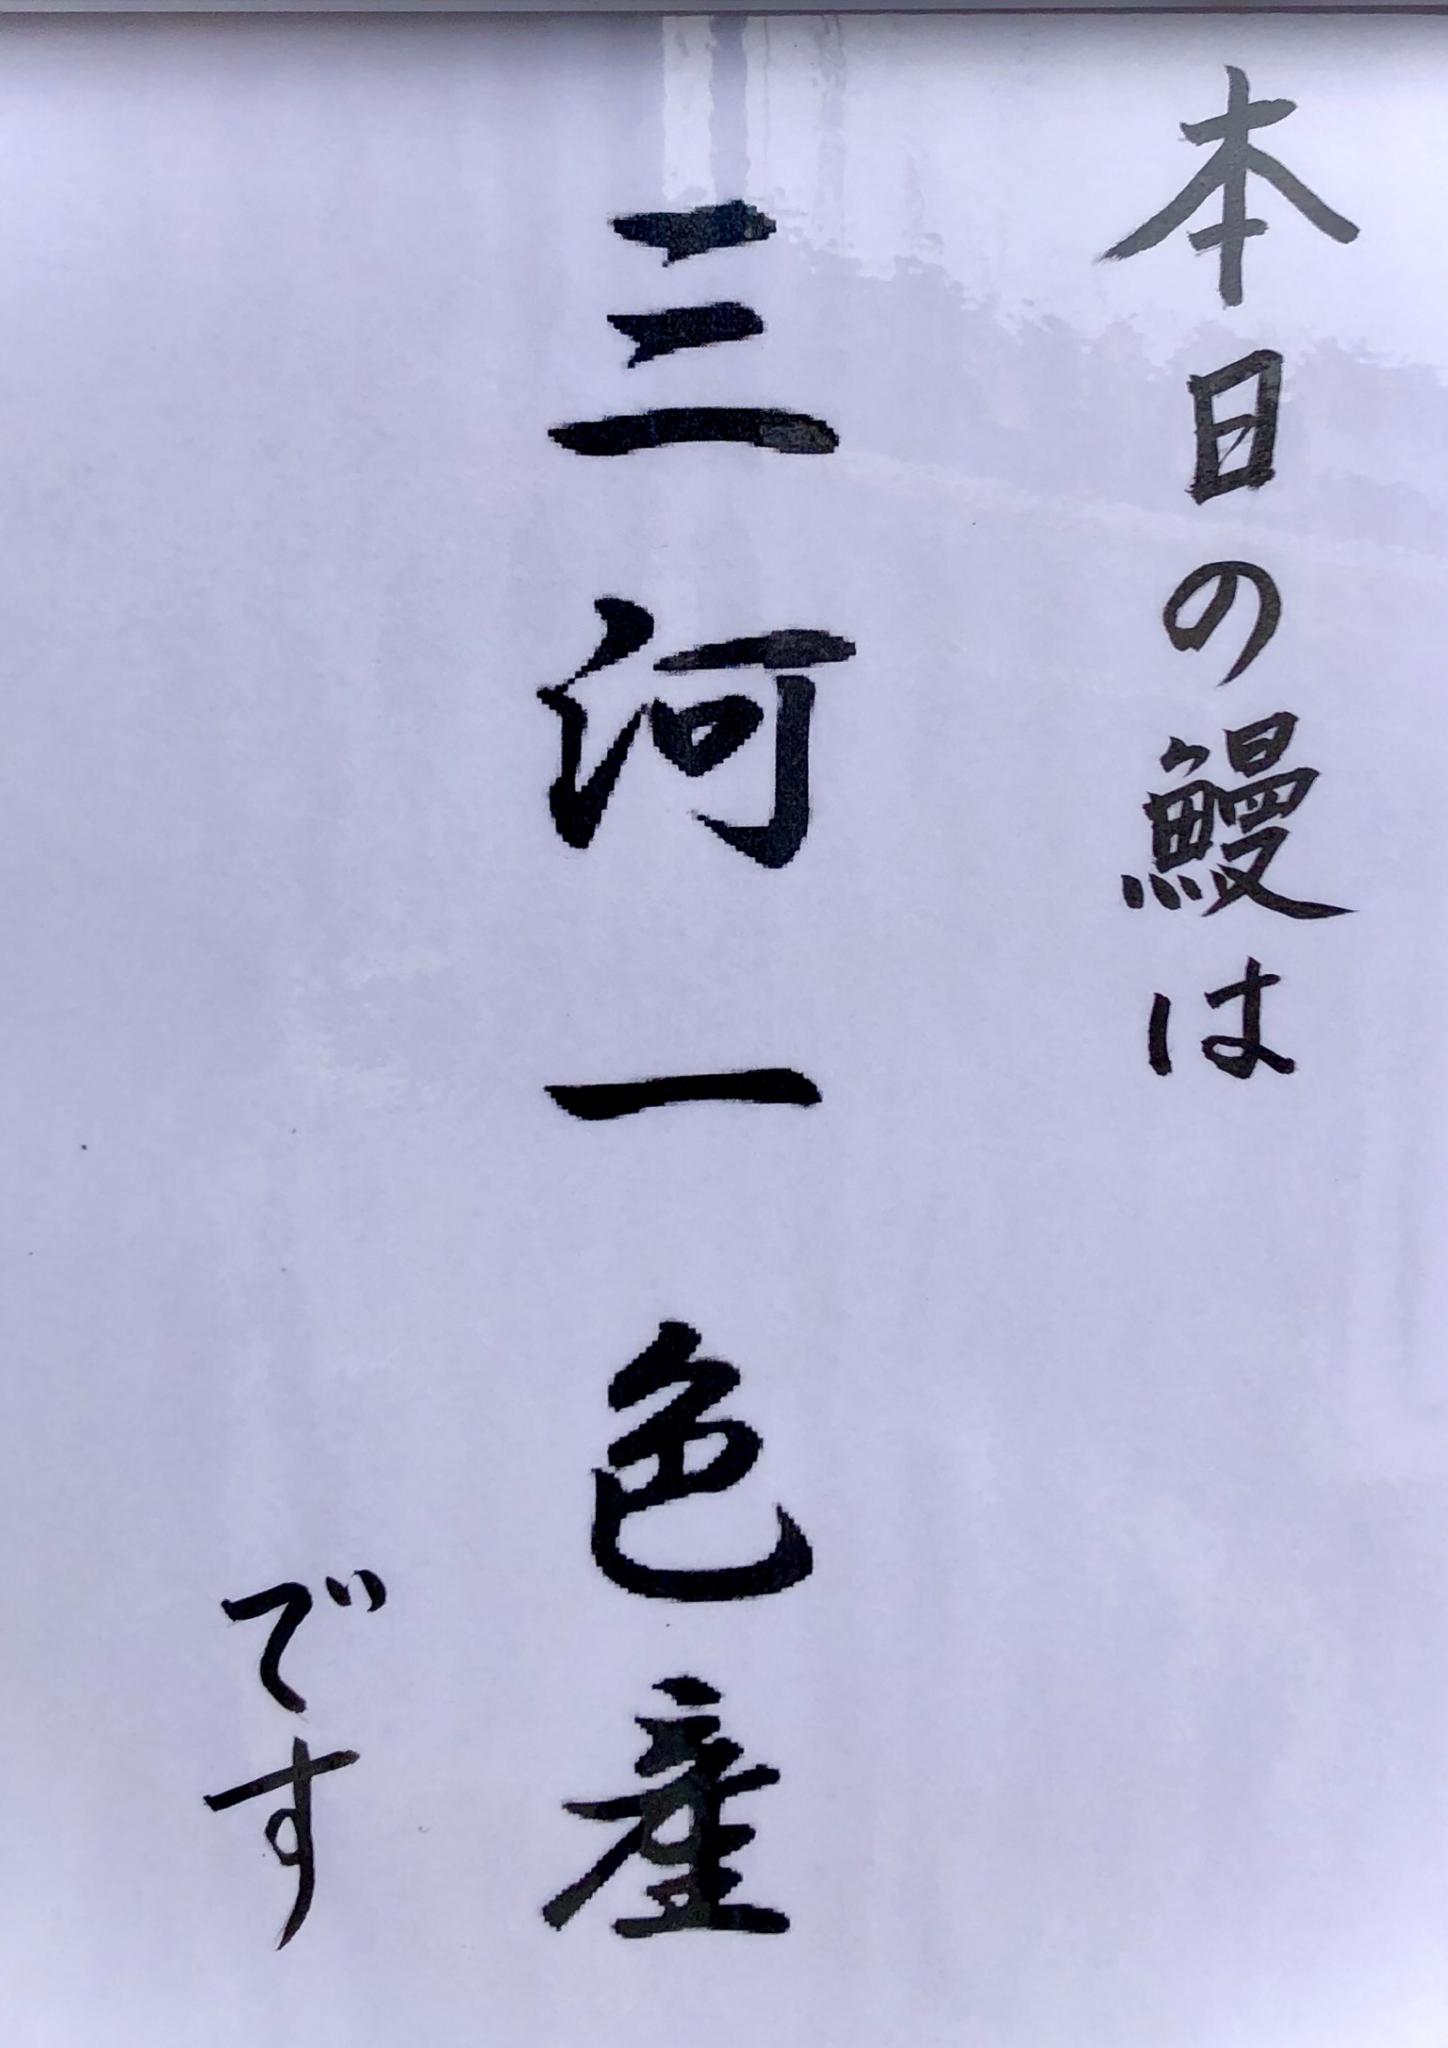 本日の鰻は
三河一色産
です